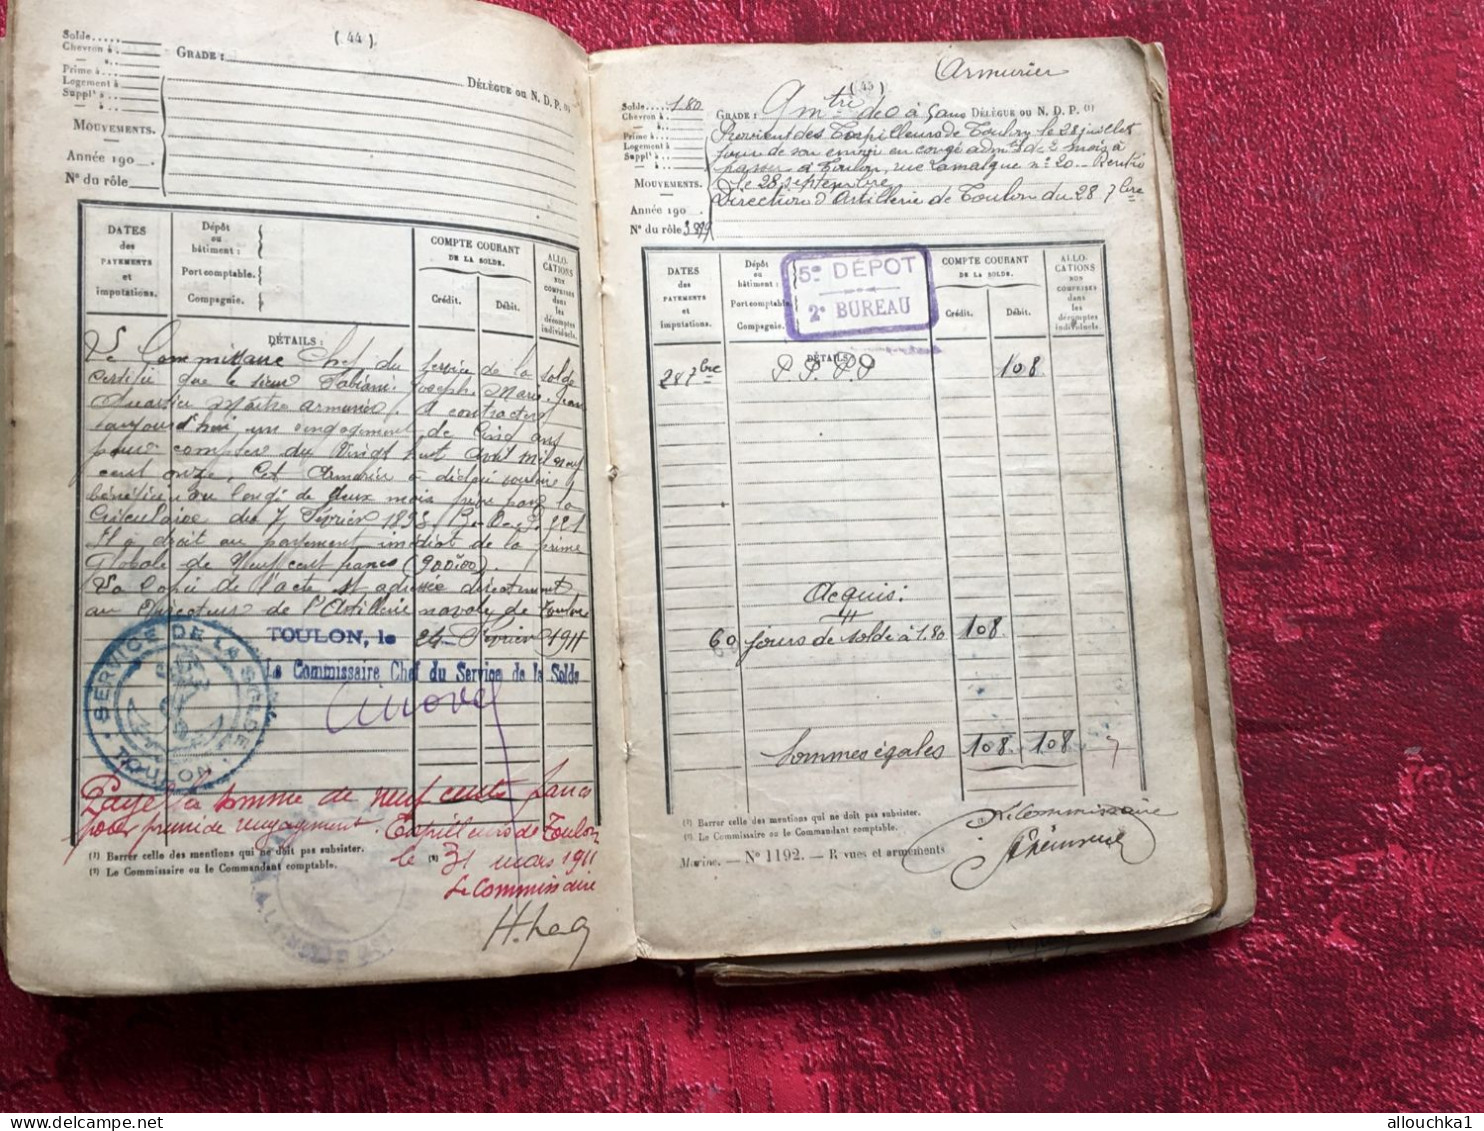 ( 44 )
Solde.....
Chevron à
— à
Prime à
Logement à
Suppl' à
GRADE :
DÉLÉGUE OU N. D. P. (1)
MOUVEMENTS.
Année 190 .
N° du rôle
DATES
des
PAYEMENTS
et
imputations.
Dépôt
ou
bâtiment :
Port comptable.
Compagnie.
COMPTE COURANT
DE LA SOLDE.
Crédit.
Débit.
ALLO-
CATIONS
NON
COMPRISES
dans
les
décomptes
individuels.
DÉTAILS :
Le Commissaire Chef du Service de la Solde
certifie que le sieur Fabiani Joseph Marie Jean
Quartier Maître armurier, a contracté
aujourd'hui un engagement de Cinq ans
pour compter du Vingt huit Avril Mil neuf
cent onze. Cet Armurier a déclaré vouloir
bénéficier du Congé de deux mois prévu par la
Circulaire du 7 Février 1895 B.O. P. 221
Il a droit au payement immédiat de la prime
Globale de Neuf cent francs (900.00)
La copie de l'acte est adressée directement
au Directeur de l'Artillerie navale de Toulon
TOULON, le 24 Février 1911
Le Commissaire Chef du Service de la Solde
SERVICE DE LA SOLDE
TOULON
Payé la somme de neuf cents francs
pour prime de rengagement. Torpilleurs de Toulon
le (2) 31 mars 1911
Le Commissaire
(1) Barrer celle des mentions qui ne doit pas subsister.
(2) Le Commissaire ou le Commandant comptable.
Armurier
( 45 )
Solde..... 1.80
Chevron à
— à
Prime à
Logement à
Suppl' à
GRADE : Qmtre de 0 à 5 ans DÉLÉGUE OU N. D. P. (1)
Provient des Torpilleurs de Toulon le 28 juillet
jour de son envoi en congé admif de 2 mois à
passer à Toulon, rue Lamalgue n° 20 - Rentré
le 28 septembre
Direction d'Artillerie de Toulon du 28 7bre
MOUVEMENTS.
Année 190
N° du rôle 3899
DATES
des
PAYEMENTS
et
imputations.
Dépôt
ou
bâtiment :
Port comptable.
Compagnie.
5e DÉPOT
2e BUREAU
COMPTE COURANT
DE LA SOLDE.
Crédit.
Débit.
ALLO-
CATIONS
NON
COMPRISES
dans
les
décomptes
individuels.
DÉTAILS
28 7bre 108
Acquis :
60 jours de solde à 1.80 108
Sommes égales 108 108
(1) Barrer celle des mentions qui ne doit pas subsister.
(2) Le Commissaire ou le Commandant comptable.
Le Commissaire
Marine. — N° 1192. — Revues et armements
allouchka1